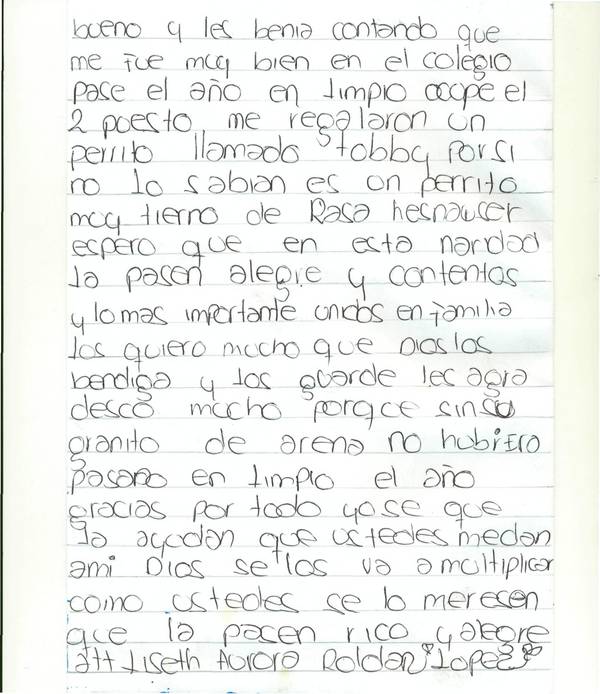 bueno y les benia contando que
me fue muy bien en el colegio
pase el año en limpio ocupe el
2 puesto me regalaron un
perrito llamado tobby por si
no lo sabian es un perrito
muy tierno de Rasa hesnauser
espero que en esta navidad
la pasen alegre y contentos
y lo mas importante unidos en familia
los quiero mucho que Dios los
bendiga y los guarde les agra
desco mucho porque sin su
granito de arena no hubiero
pasado en limpio el año
gracias por todo yo se que
la ayudan que ustedes medan
ami Dios se los va a multiplicar
como ustedes se lo meresen
que la pacen rico y alegre
att liseth Aurora Roldan Lopez